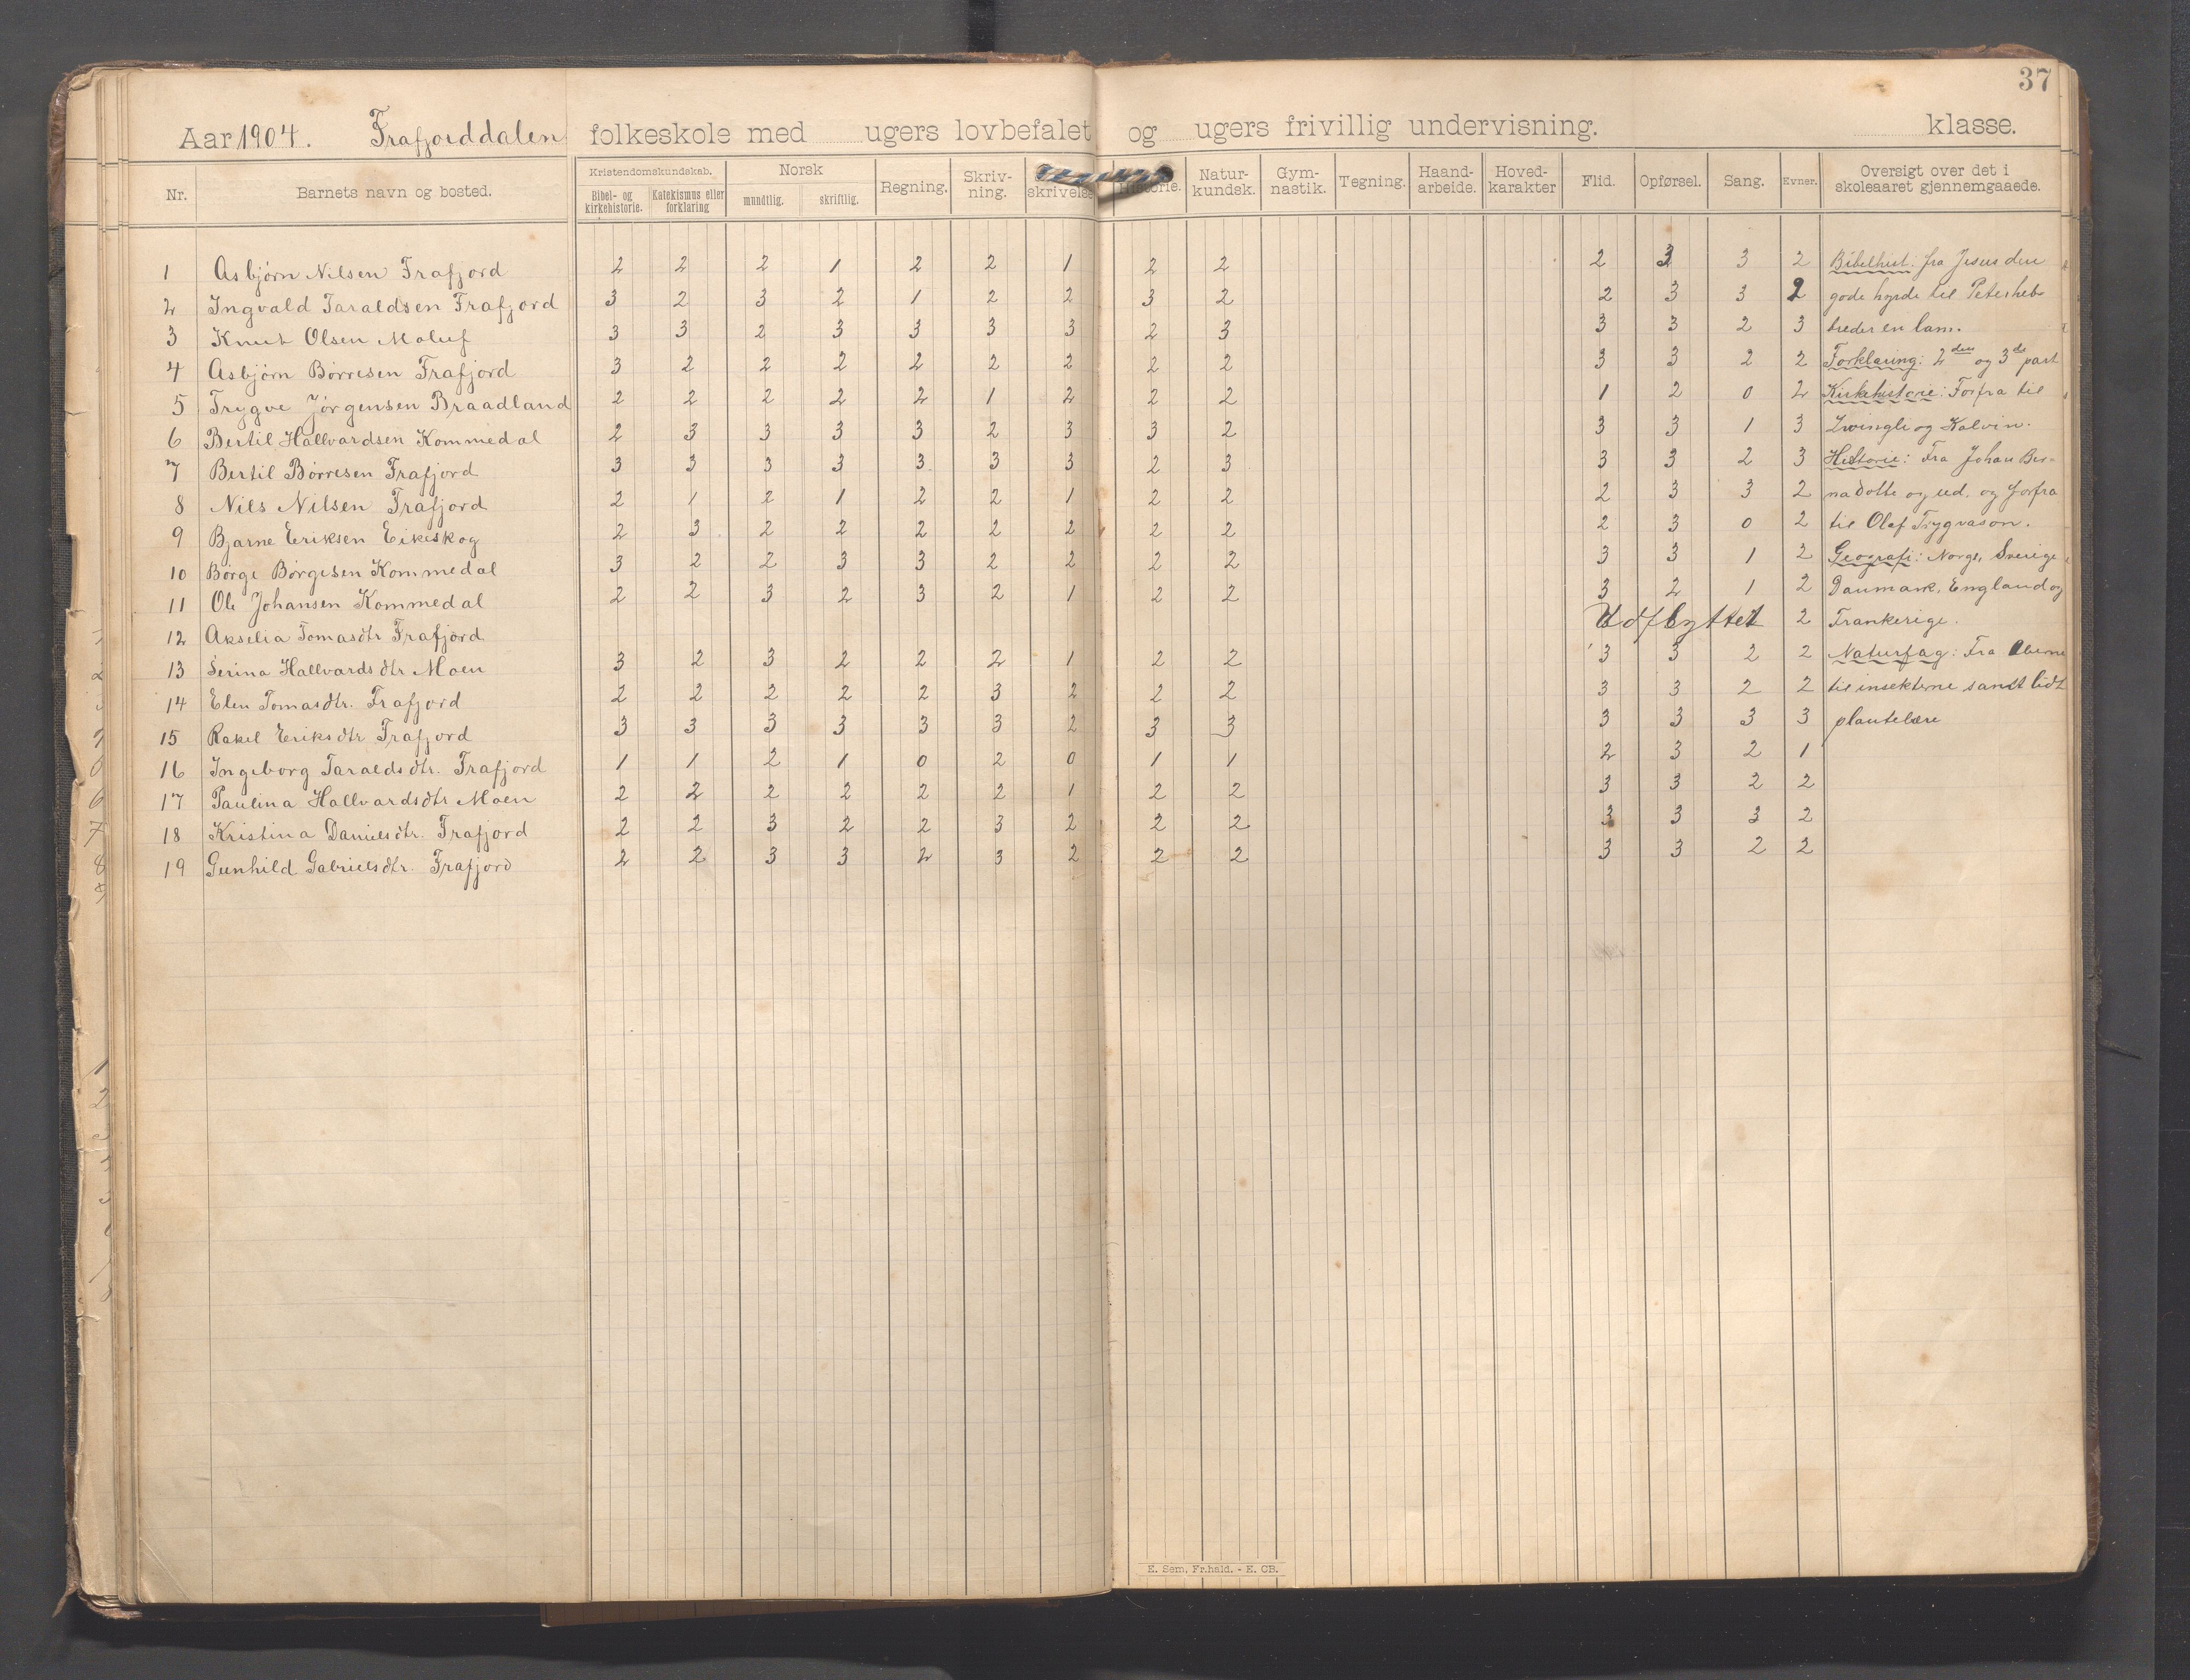 37
Aar 1904. Frafjorddalen folkeskole med ugers lovbefalet og ugers frivillig undervisning. klasse.
Nr. Barnets navn og bosted. Kristendomskundskab. Bibel- og kirkehistorie. Katekismus eller forklaring Norsk mundtlig. skriftlig. Regning. Skriv-ning. skrivelse Historie. Natur-kundsk. Gym-nastik. Tegning. Haand-arbeide. Hoved-karakter Flid. Opførsel. Sang. Evner. Oversigt over det i skoleaaret gjennemgaaede.
1 Asbjørn Nilsen Frafjord 2 2 2 1 2 2 1 2 2 2 3 3 2 Bibelhist: fra Jesus den
2 Ingvald Taraldsen Frafjord 3 2 3 2 1 2 2 3 2 2 3 3 2 gode hyrde til Peter heb
3 Knut Olsen Moluf 3 3 2 3 3 3 3 2 3 3 3 2 3 breder en lam.
4 Asbjørn Børresen Frafjord 3 2 2 2 2 2 2 2 2 3 3 2 2 Forklaring: 2den og 3de part
5 Trygve Jørgensen Braadland 2 2 2 2 2 1 2 2 2 1 2 0 2 Kirkehistorie: Forfra til
6 Bertil Hallvardsen Kommedal 2 3 3 3 3 2 3 3 2 3 3 1 3 Zwingli og Kalvin.
7 Bertil Børresen Frafjord 3 3 3 3 3 3 3 2 3 3 3 2 3 Historie: Fra Johan Ber-
8 Nils Nilsen Frafjord 2 1 2 1 2 2 1 2 2 2 3 3 2 nadotte og ud. og forfra
9 Bjarne Eriksen Eikeskog 2 3 2 2 2 2 2 2 2 2 3 0 2 til Olaf Trygvason.
10 Børge Børgesen Kommedal 3 2 2 3 3 2 2 2 2 3 3 1 2 Geografi: Norge, Sverige
11 Ole Johansen Kommedal 2 2 3 2 3 2 1 2 2 3 2 1 2 Danmark, England og
12 Akselia Tomasdtr Frafjord Udflyttet 2 Frankerige.
13 Serina Hallvardsdtr Moen 3 2 3 2 2 2 1 2 2 3 3 2 2 Naturfag: Fra Aberne
14 Elen Tomasdtr. Frafjord 2 2 2 2 2 3 2 2 2 3 3 2 2 til insekterne samt lidt
15 Rakel Eriksdtr Frafjord 3 3 3 3 3 3 2 3 3 3 3 3 3 plantelære
16 Ingeborg Taraldsdtr. Frafjord 1 1 2 1 0 2 0 1 1 2 3 2 1
17 Paulina Hallvardsdtr Moen 2 2 2 2 2 2 1 2 2 3 3 2 2
18 Kristina Danielsdtr. Frafjord 2 2 3 2 2 3 2 2 2 3 3 3 2
19 Gunhild Gabrielsdtr. Frafjord 2 2 3 3 2 3 2 2 2 3 3 2 2
E. Sem, Fr.hald. - E. CB.